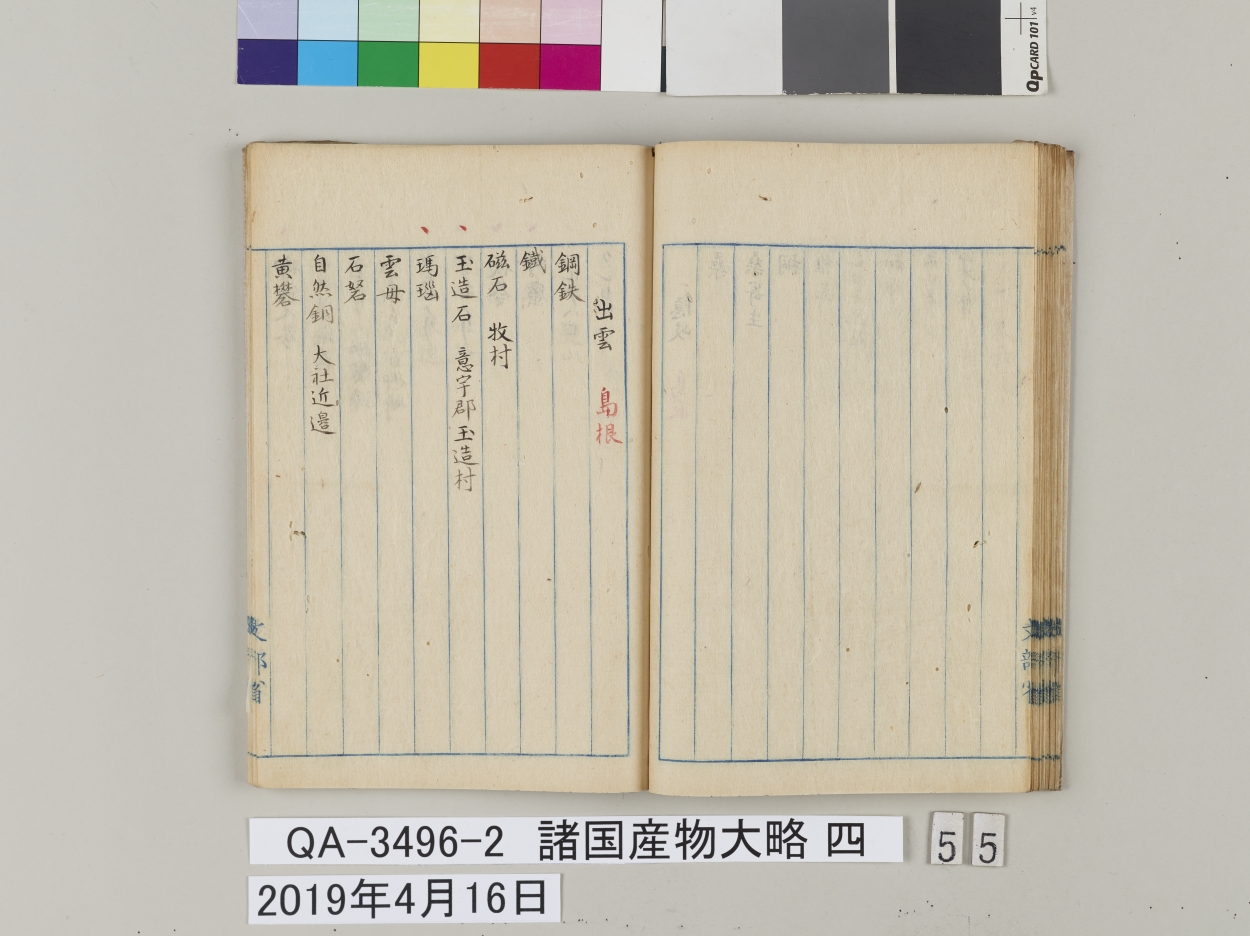 QpCARD 101 v4
出雲 島根
鋼鉄
鐵
磁石 牧村
玉造石 意宇郡玉造村
瑪瑙
雲母
石砮
自然銅 大社近邉
黄礬
文部省
文部省
QA-3496-2 諸国産物大略 四
55
2019年4月16日